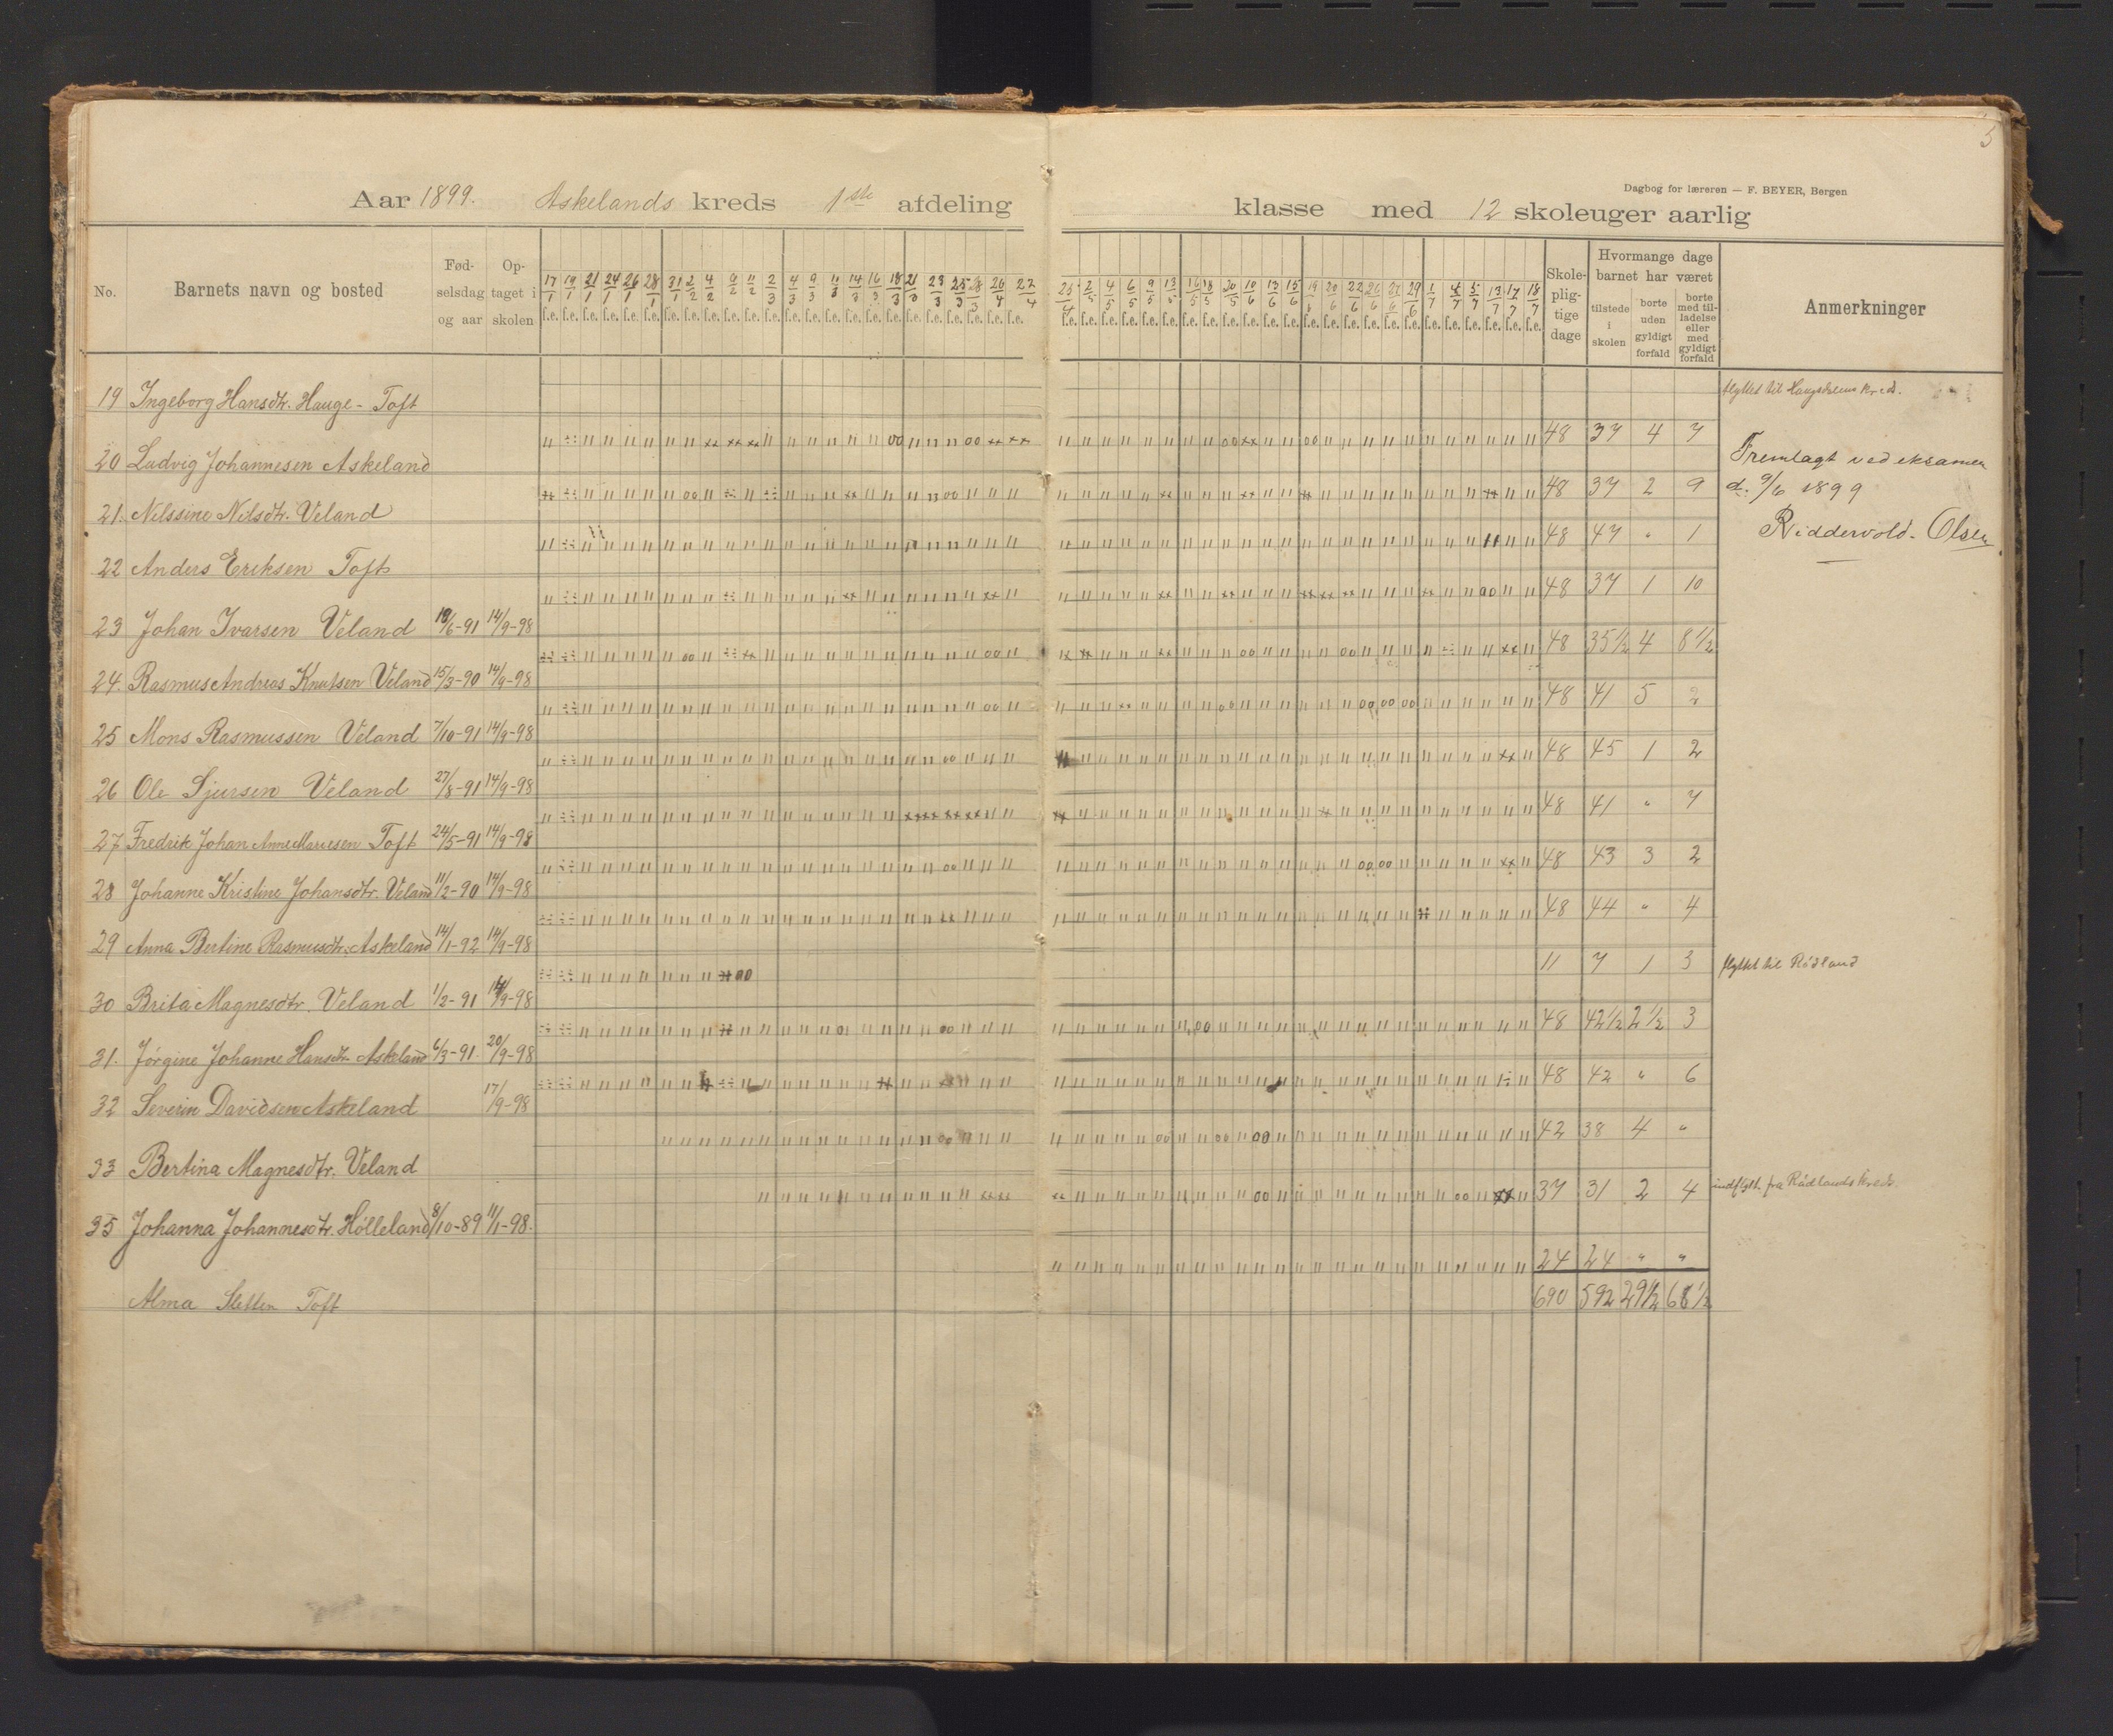 5
Dagbog for læreren — F. BEYER, Bergen
Aar 1899. Askelands kreds 1ste afdeling klasse med 12 skoleuger aarlig
No. Barnets navn og bosted Fødselsdag og aar Optaget i skolen Skolepligtige dage Hvormange dage barnet har været tilstede i skolen borte uden gyldigt forfald borte med tilladelse eller med gyldigt forfald Anmerkninger
17/1 19/1 21/1 24/1 26/1 28/1 31/1 2/2 4/2 9/2 11/2 2/3 4/3 9/3 11/3 14/3 16/3 18/3 21/3 23/3 25/3
f.e. f.e. f.e. f.e. f.e. f.e. f.e. f.e. f.e. f.e. f.e. f.e. f.e. f.e. f.e. f.e. f.e. f.e. f.e. f.e. f.e. f.e. f.e. f.e.
19 Ingeborg Hansdtr. Hauge - Toft
flyttet til
48 37 4 7
20 Ludvig Johannesen Askeland
Fremlagt ved eksamen
48 37 2 9 d. 9/6 1899
21. Nilssine Nilsdtr. Veland
48 47 " 1 Riddervold. Olsen
22 Anders Eriksen Toft
48 37 1 10
23 Johan Ivarsen Veland 18/6-91 14/9-98
48 35 1/2 4 8 1/2
24. Rasmus Andreas Knutsen Veland 15/3-90 14/9-98
48 41 5 2
25 Mons Rasmussen Veland 7/10-91 14/9-98
48 45 1 2
26 Ole Sjursen Veland 27/8-91 14/9-98
48 41 " 7
27 Fredrik Johan AnneMariesen Toft 24/5-91 14/9-98
48 43 3 2
28 Johanne Kristine Johansdtr. Veland 11/2-90 14/9-98
48 44 " 4
29 Anna Bertine Rasmusdtr. Askeland 14/1-92 14/9-98
11 7 1 3 flyttet til Rødland
30 Brita Magnesdtr. Veland 1/2-91 14/9-98
48 42 1/2 2 1/2 3
31. Jørgine Johanne Hansdtr. Askeland 6/3-91. 20/9-98
48 42 " 6
32 Severin Davidsen Askeland 17/9-98
42 38 4 "
33 Bertina Magnesdtr. Veland
37 31 2 4 indflytt. fra Rødlands kreds.
35 Johanna Johannesdtr. Hølleland 8/10-89 11/1-98.
24 24 " "
Alma Sletten Toft
690 592 29 1/2 68 1/2